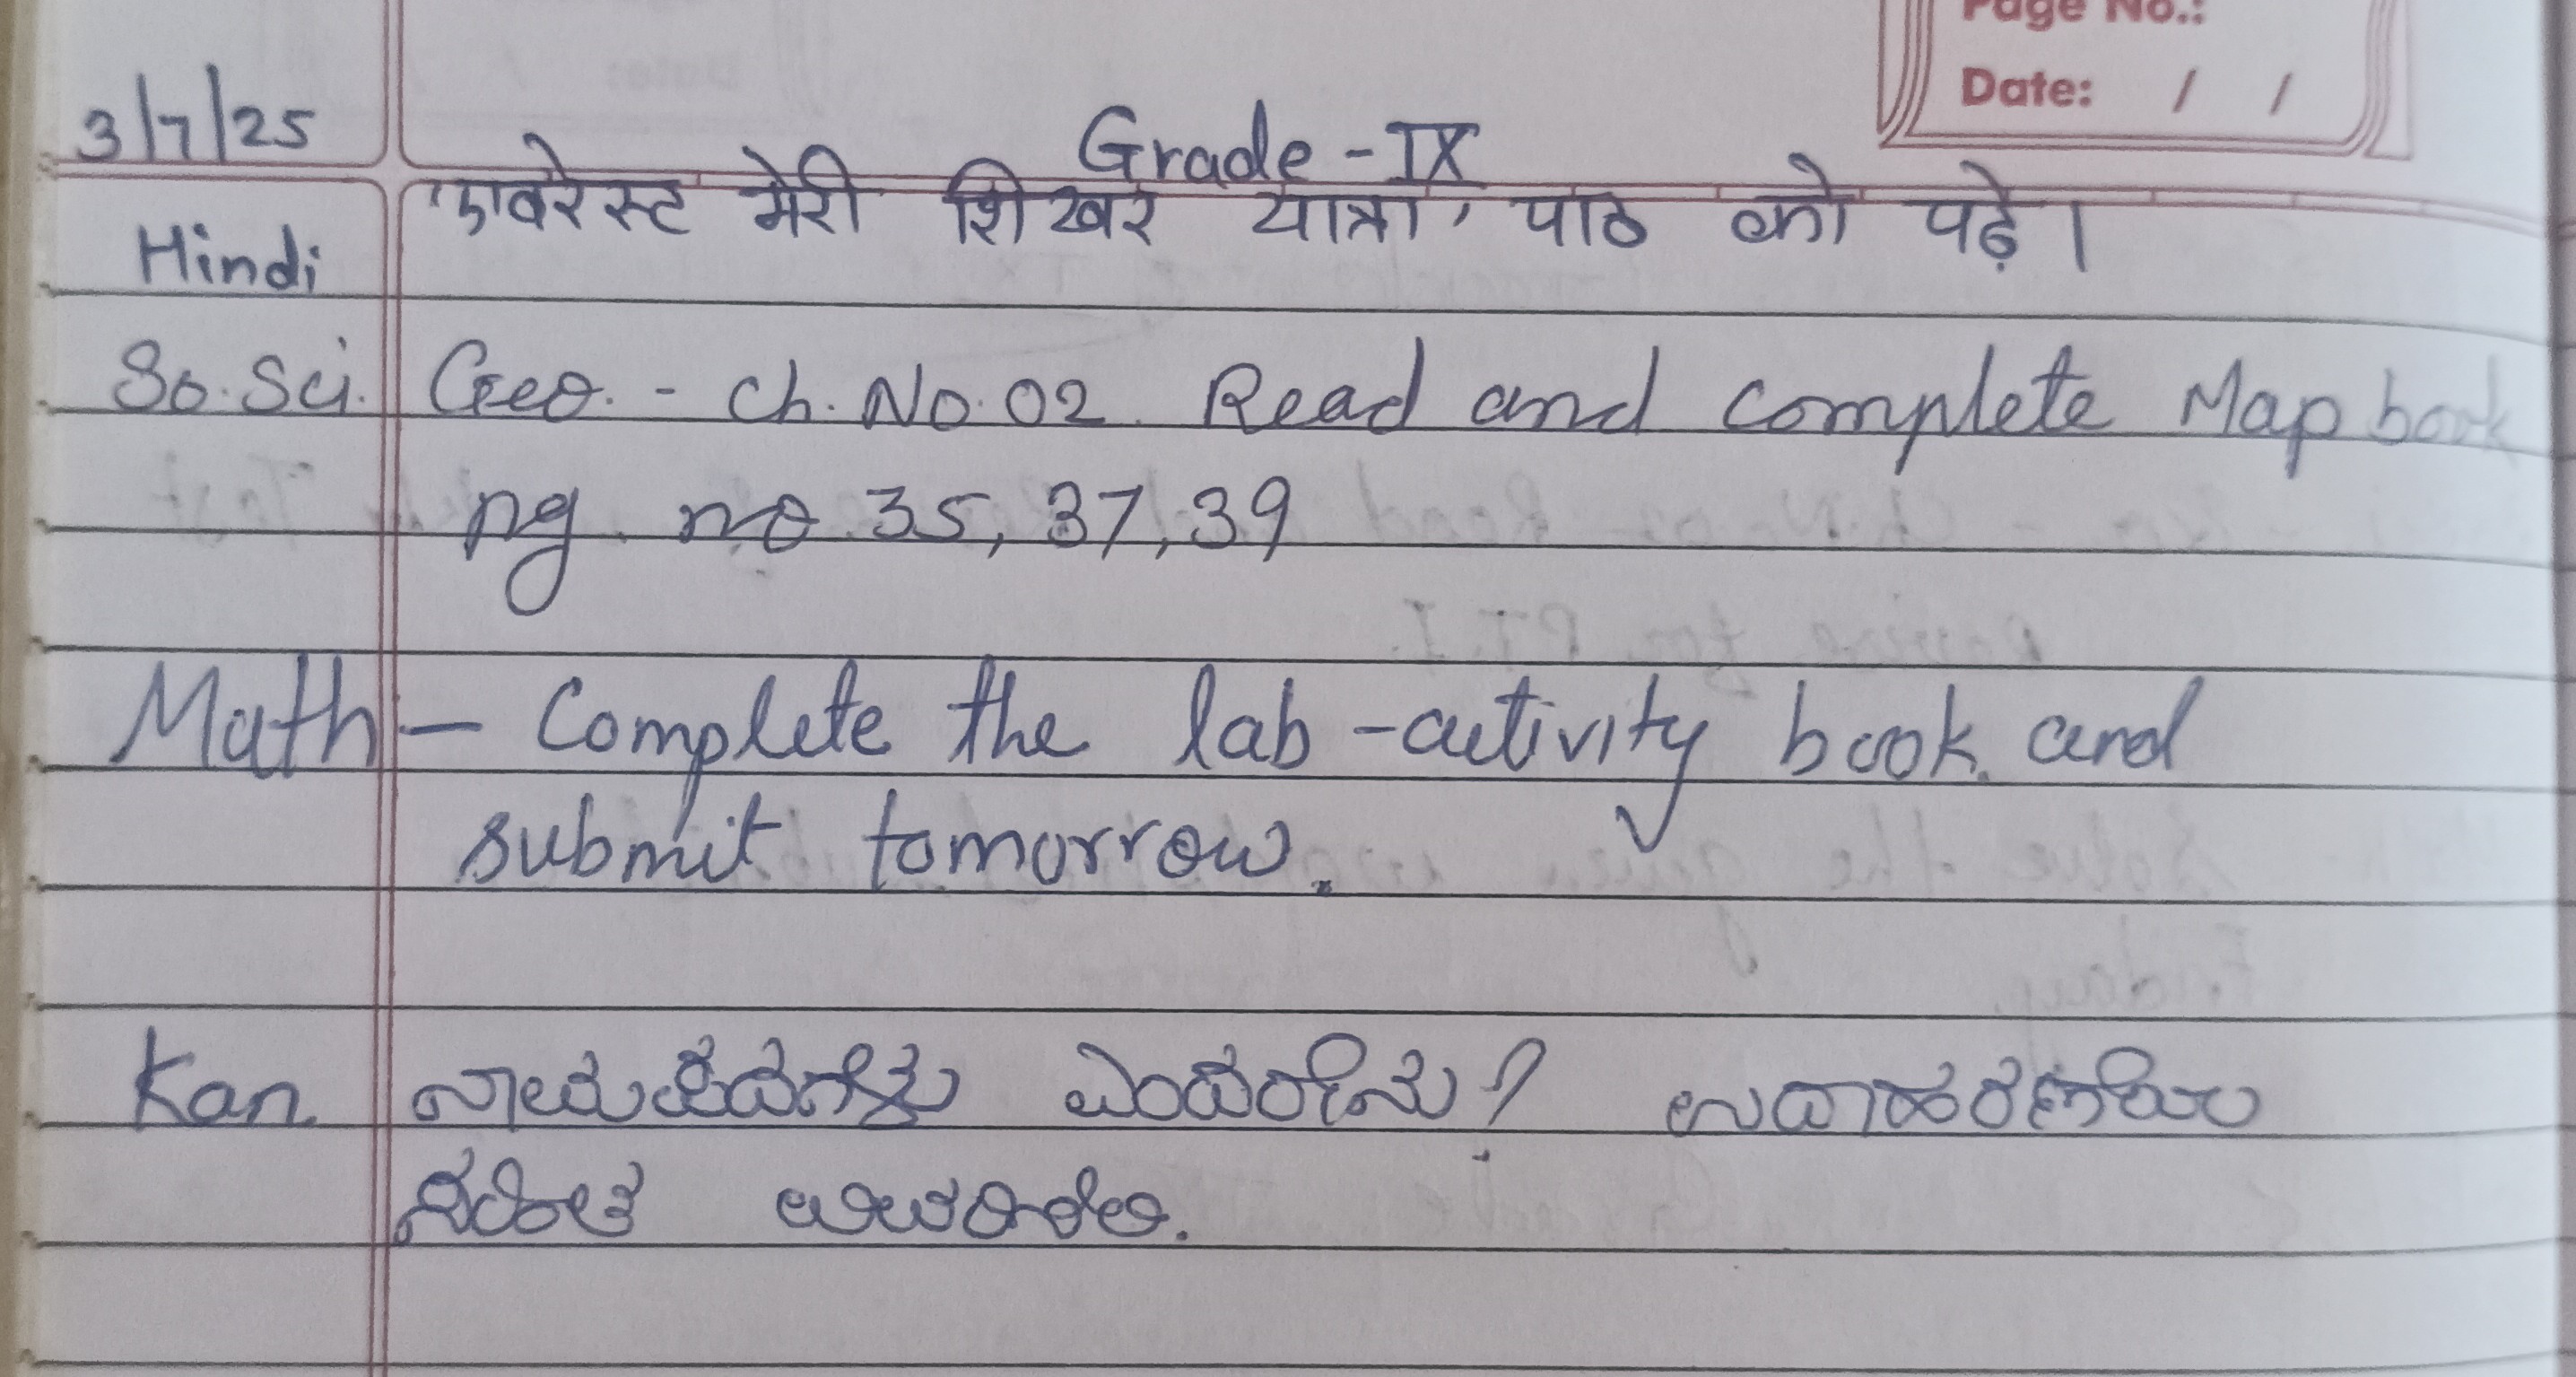 Page No.:
Date: / /
3/7/25 Grade - IX
Hindi 'एवरेस्ट मेरी शिखर यात्रा' पाठ को पढ़े।
So. Sci. Geo. - Ch. No. 02. Read and complete Map book
pg. no. 35, 37, 39
Math - Complete the lab-activity book and
submit tomorrow.
Kan. ನಾಮಪದಗಳು ಎಂದರೇನು? ಉದಾಹರಣೆಯ
ಸಹಿತ ವಿವರಿಸಿ.